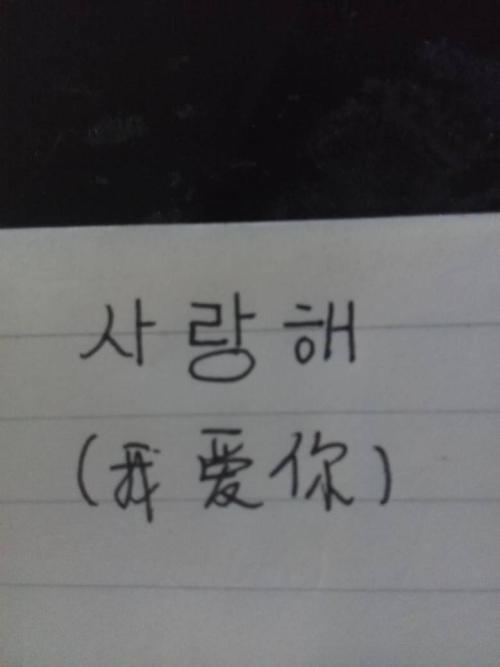 사랑해
(我爱你)